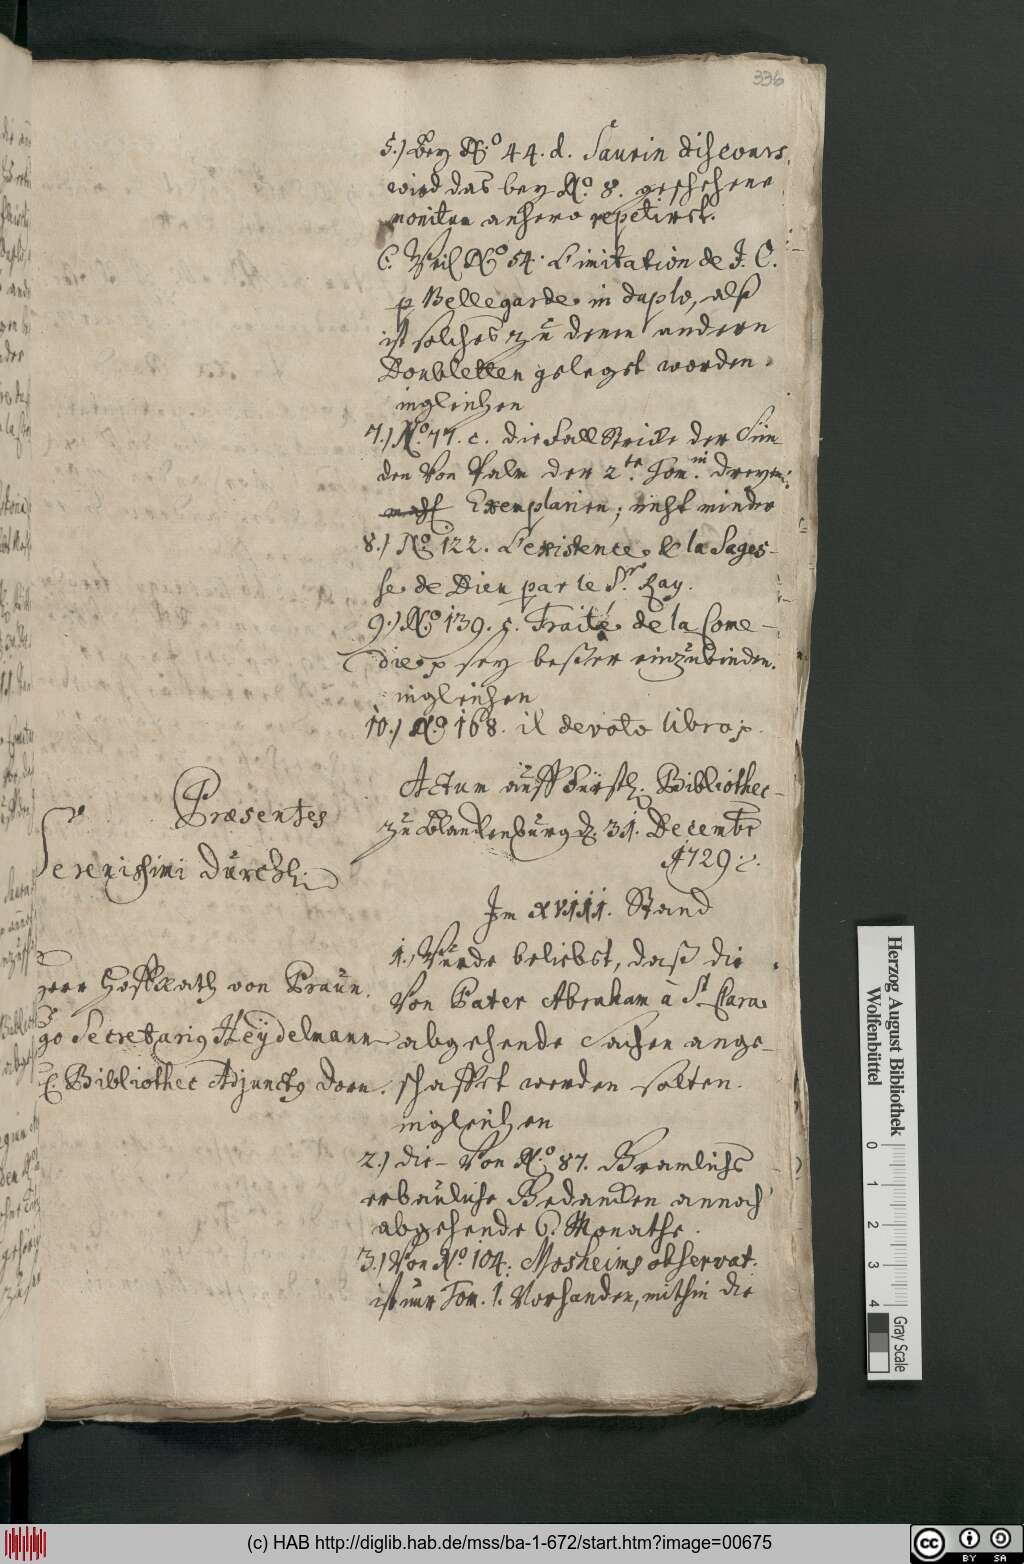 336
5.) Bey No. 44. d. Saurin discours
wird das bey No. 8. geschehene
monitum anhero repetiret.
6. Weil No. 54. L'imitation de J. C.
p Bellegarde in duplo, alß
ist solches zu denen andern
Doubletten geleget worden.
ingleichen
7.) No. 77. c. die Fall Stricke der Sün
den von Palm der 2te. Tom. in dreyen
Exemplarien; nicht minder
8.) No. 122. L'existence & la Sages-
se de Dieu par le Sr. Ray.
9.) No. 139. c. Traité de la Come-
die p sey beßer einzubinden.
ingleichen
10.) No. 168. il devoto libro p.
Actum auff Fürstl. Bibliothec
zu Blanckenburg d. 31. Decembr
1729.
Im XVIII. Stand
Præsentes
Serenissimi Durchl.
Herr Hoffrath von Praun.
Secretarius Heydelmann
Bibliothec Adjunctus Dorn.
1.) Wurde beliebet, daß die
von Pater Abraham à St. Clara
abgehende Sachen ange-
schaffet werden solten.
ingleichen
2.) die von No. 87. Bramlichs
erbauliche Gedancken annoch
abgehende 6. Monathe.
3.) Von No. 104. Mosheims observat.
ist nur Tom. 1. vorhanden, mithin die
Herzog August Bibliothek
Wolfenbüttel
0 1 2 3 4
Gray Scale
(c) HAB http://diglib.hab.de/mss/ba-1-672/start.htm?image=00675
cc BY SA